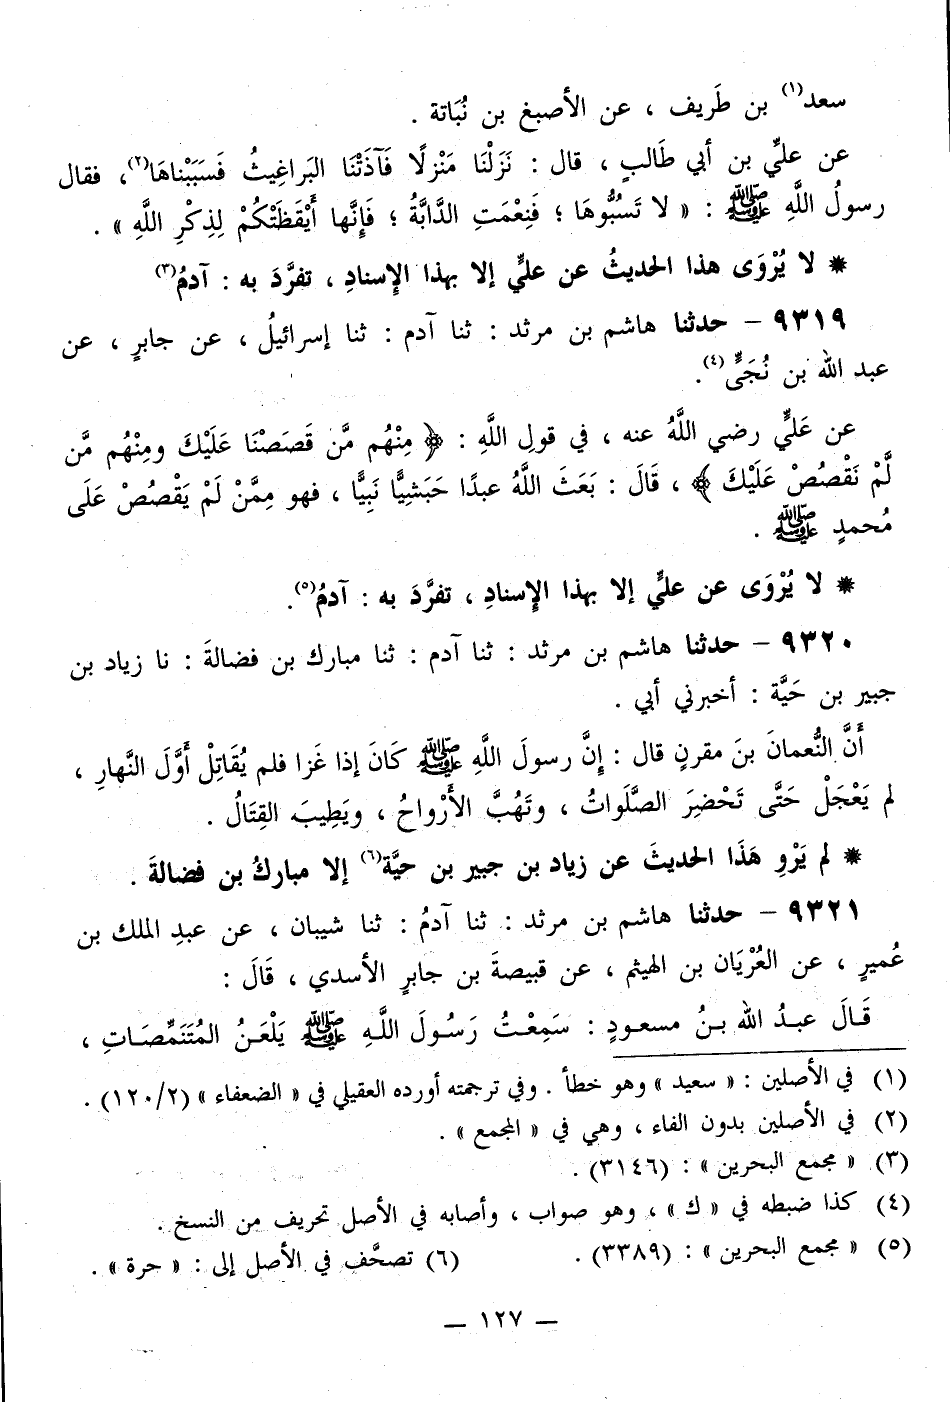 سعد(١) بن طَريف ، عن الأصبغ بن نُبَاتة .
عن عليِّ بن أبي طَالبٍ ، قال : نَزَلْنَا مَنْزلًا فَآذَتْنَا البَراغِيثُ فَسَبَبْناهَا(٢)، فقال
رسولُ اللَّهِ ﷺ : « لا تَسُبُّوهَا ؛ فَنِعْمَتِ الدَّابَّةُ ؛ فَإِنَّها أَيْقَظَتْكُمْ لِذِكْرِ اللَّهِ » .
* لا يُرْوَى هذا الحديثُ عن عليٍّ إلا بهذا الإسنادِ ، تفرَّدَ به : آدمُ(٣)
٩٣١٩ – حدثنا هاشم بن مرثد : ثنا آدم : ثنا إسرائيلُ ، عن جابرٍ ، عن
عبد الله بن نُجَيٍّ(٤).
عن عَليٍّ رضي اللَّهُ عنه ، في قولِ اللَّهِ : ﴿ مِنْهُم مَّن قَصَصْنَا عَلَيْكَ ومِنْهُم مَّن
لَّمْ نَقْصُصْ عَلَيْكَ ﴾ ، قَالَ : بَعَثَ اللَّهُ عبدًا حَبَشِيًّا نَبِيًّا ، فهو مِمَّنْ لَمْ يَقْصُصْ عَلَى
مُحمدٍ ﷺ .
* لا يُرْوَى عن عليٍّ إلا بهذا الإسنادِ ، تفرَّدَ به : آدمُ(٥).
٩٣٢٠ – حدثنا هاشم بن مرثد : ثنا آدم : ثنا مبارك بن فضالةَ : نا زياد بن
جبير بن حَيَّة : أخبرني أبي .
أَنَّ النُّعمانَ بنَ مقرنٍ قال : إِنَّ رسولَ اللَّهِ ﷺ كَانَ إذا غَزا فلم يُقَاتِلْ أَوَّلَ النَّهارِ ،
لم يَعْجَلْ حَتَّى تَحْضِرَ الصَّلَواتُ ، وتَهُبَّ الأَرْواحُ ، ويَطِيبَ القِتَالُ .
* لم يَرْوِ هَذَا الحديثَ عن زياد بن جبير بن حيَّة(٦) إلا مباركُ بن فضالةَ .
٩٣٢١ – حدثنا هاشم بن مرثد : ثنا آدمُ : ثنا شيبان ، عن عبدِ الملك بن
عُميرٍ ، عن العُرْيَان بن الهيثم ، عن قبيصةَ بن جابرٍ الأسدي ، قَالَ :
قَالَ عبدُ الله بنُ مسعودٍ : سَمِعْتُ رَسُولَ اللَّهِ ﷺ يَلْعَنُ المُتَنَمِّصَاتِ ،
(١) في الأصلين : « سعيد » وهو خطأ . وفي ترجمته أورده العقيلي في « الضعفاء » (١٢٠/٢) .
(٢) في الأصلين بدون الفاء ، وهي في « المجمع » .
(٣) « مجمع البحرين » : (٣١٤٦) .
(٤) كذا ضبطه في « ك » ، وهو صواب ، وأصابه في الأصل تحريف من النسخ .
(٥) « مجمع البحرين » : (٣٣٨٩) . (٦) تصحَّف في الأصل إلى : « حرة » .
— ١٢٧ —